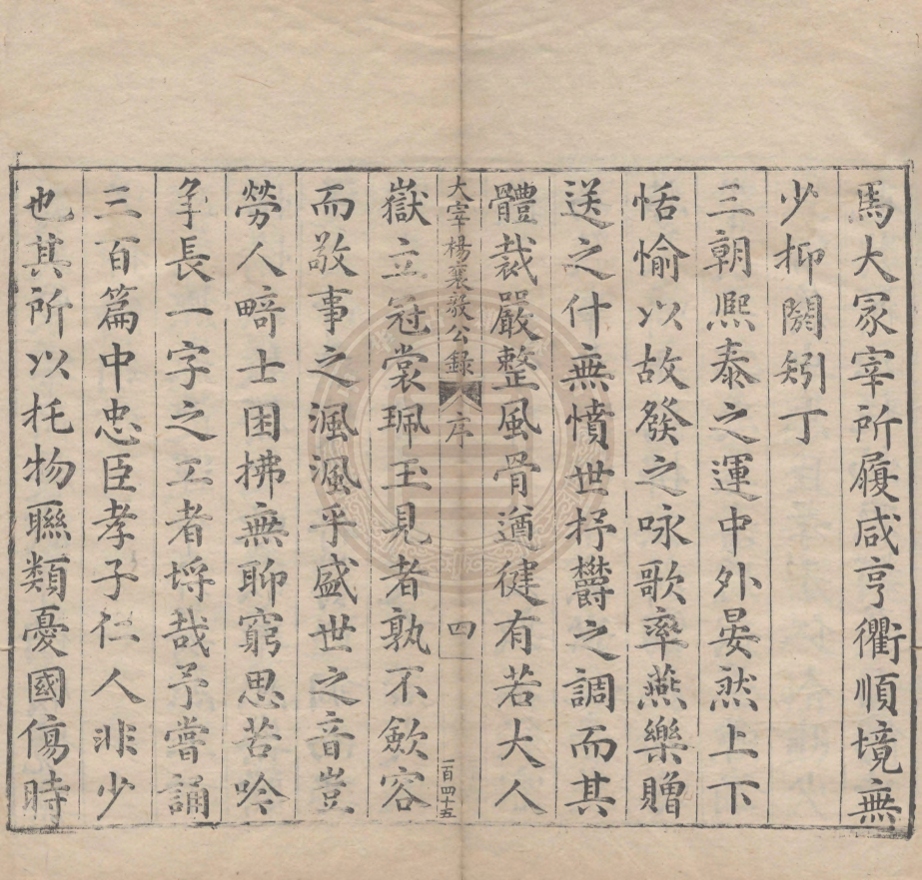 馬大冢宰所履咸亨衢順境無
少抑閼矧丁
三朝熈泰之運中外晏然上下
恬愉以故發之咏歌率燕樂贈
送之什無憤世抒欝之調而其
體裁嚴整風骨遒健有若大人
大宰楊襄毅公録 序 四 一百四十五
嶽立冠裳珮玉見者孰不歛容
而敬事之渢渢乎盛世之音豈
勞人畸士困拂無聊窮思苦吟
爭長一字之工者埒哉予嘗誦
三百篇中忠臣孝子仁人非少
也其所以托物聯類憂國傷時